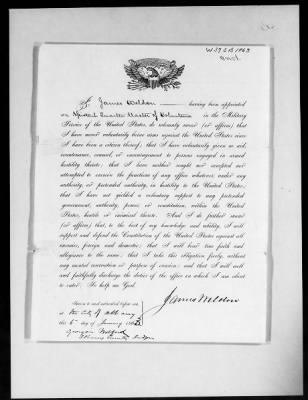 W 579 C B 1863
encl.
I, James Weldon having been appointed
an Assistant Quarter Master of Volunteers in the Military
Service of the United States, do solemnly swear (or affirm) that
I have never voluntarily borne arms against the United States since
I have been a citizen thereof; that I have voluntarily given no aid,
countenance, counsel, or encouragement to persons engaged in armed
hostility thereto; that I have neither sought nor accepted nor
attempted to exercise the functions of any office whatever, under any
authority, or pretended authority, in hostility to the United States;
that I have not yielded a voluntary support to any pretended
government, authority, power, or constitution, within the United
States, hostile or inimical thereto. And I do further swear
(or affirm) that, to the best of my knowledge and ability, I will
support and defend the Constitution of the United States against all
enemies, foreign and domestic; that I will bear true faith and
allegiance to the same; that I take this obligation freely, without
any mental reservation or purpose of evasion; and that I will well
and faithfully discharge the duties of the office on which I am about
to enter. So help me God.
James Weldon
Sworn to and subscribed before me
at the City of Albany
this 6 day of January 1863
George Wolford
Albany County Judge